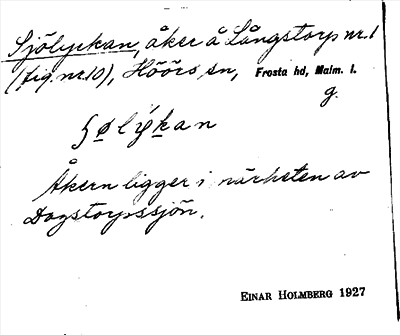 Sjölyckan, åker å Långstorp nr. 1
(fig. nr. 10), Höörs sn, Frosta hd, Malm. l.
g.
ʃølýkan
Åkern ligger i närheten av
Dagstorpssjön.
EINAR HOLMBERG 1927